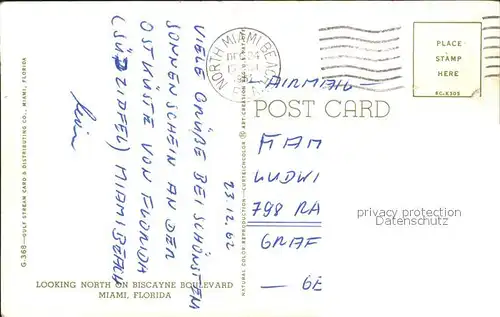 VIELE GRÜßE BEI SCHÖNSTEM
SONNENSCHEIN AN DER
OSTKÜSTE VON FLORIDA
(SÜDZIPFEL) MIAMI BEACH
23.12.62
G-368—GULF STREAM CARD & DISTRIBUTING CO., MIAMI, FLORIDA
LOOKING NORTH ON BISCAYNE BOULEVARD
MIAMI, FLORIDA
NATURAL COLOR REPRODUCTION—CURTEICHCOLOR ® ART-CREATION
NORTH MIAMI BEACH
DEC 24
PLACE
STAMP
HERE
- AIRMAIL -
POST CARD
LUDWI
798 RA
GRAF
GE
protection protected
Datenschutz